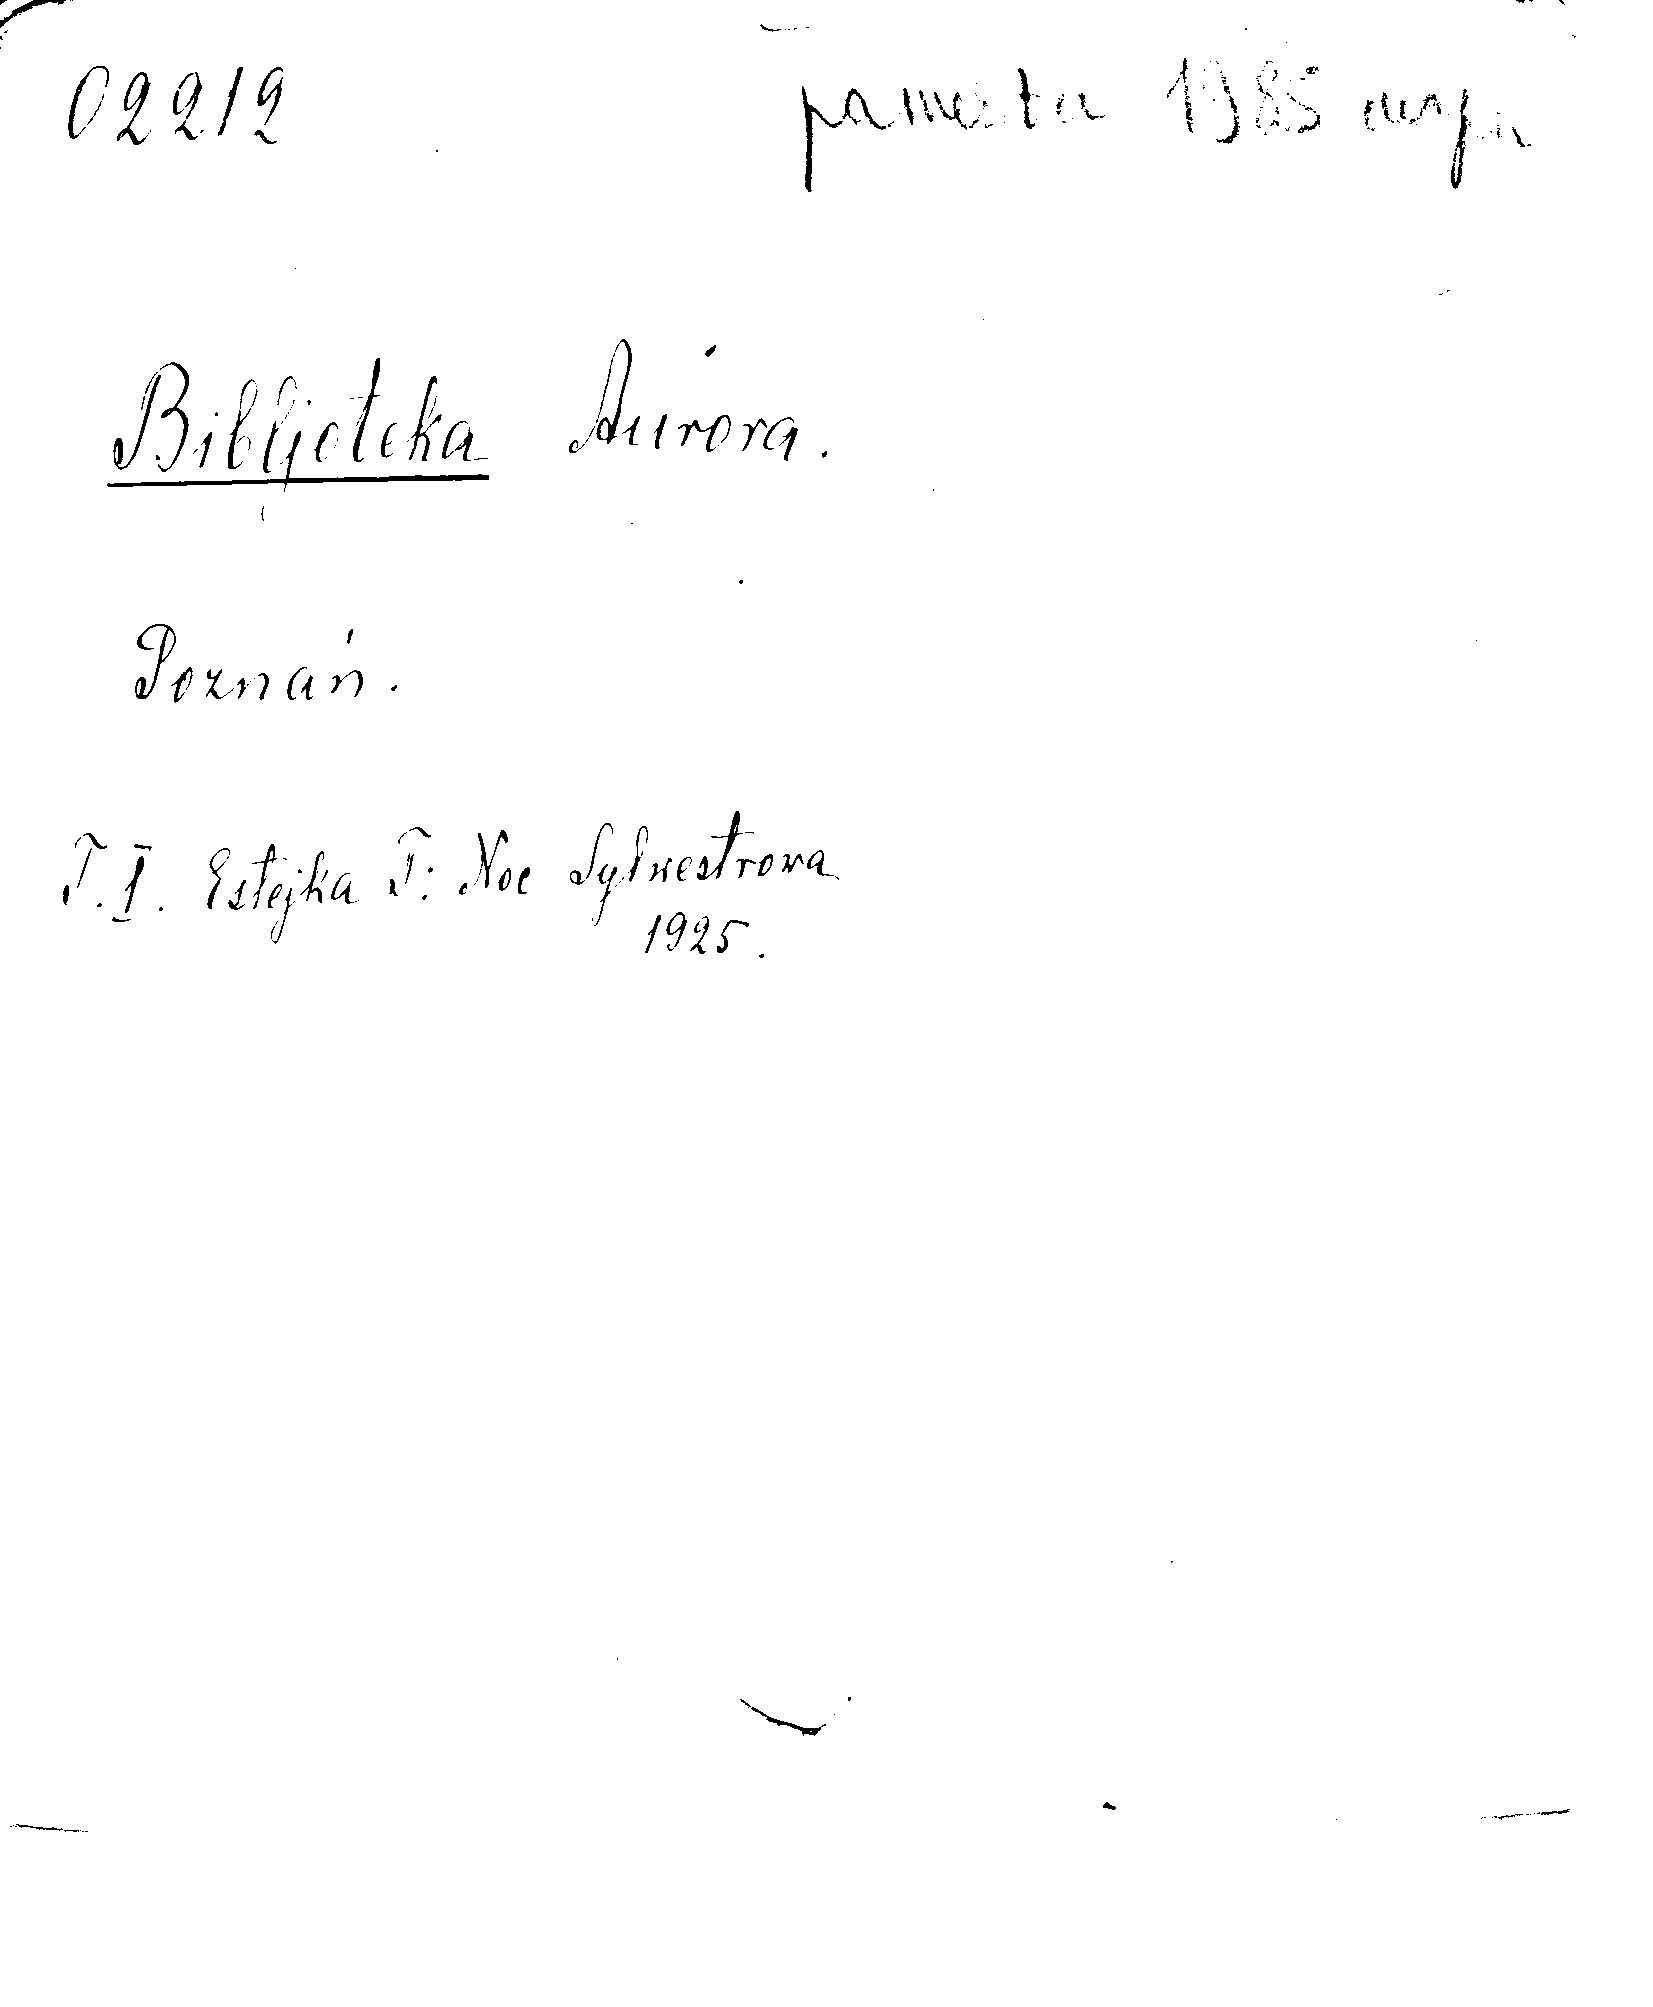 02212 1985
Bibljoteka Aurora.
Poznań.
T. I. Estejka T: Noc Sylwestrowa
1925.